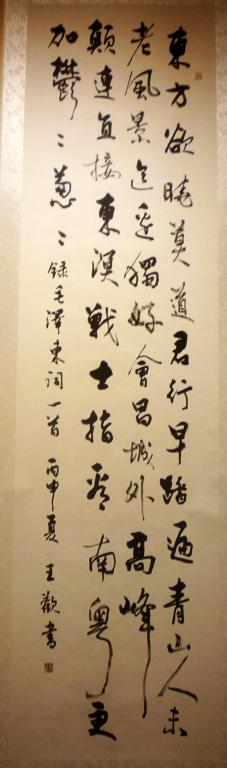 東方欲曉莫道君行早踏遍青山人未
老風景這邊獨好會昌城外高峰
顛連直接東溟戰士指看南粵更
加鬱〻蔥〻錄毛澤東詞一首 丙申夏 王歡書